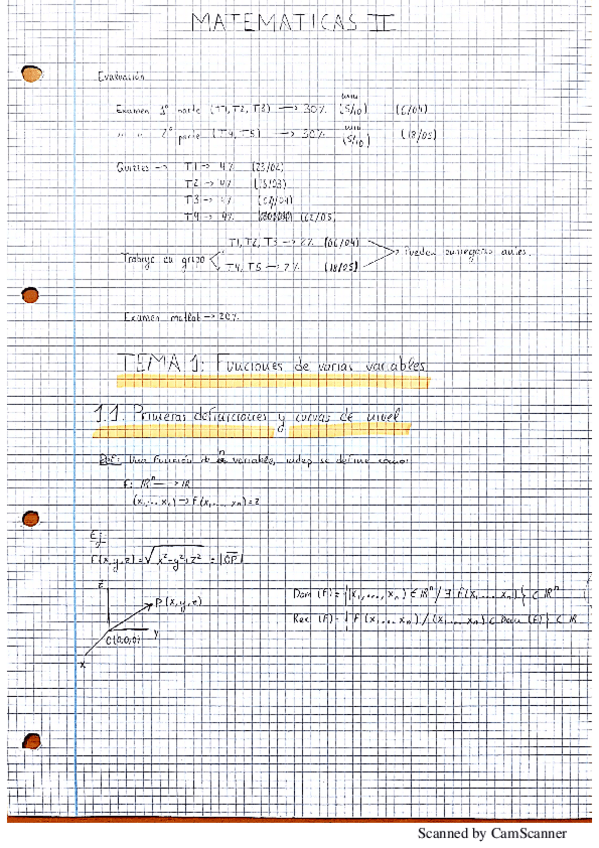 MATEMATICAS II
Evaluación
Examen 1º parte (T1, T2, T3) → 30% (5/10) (6/04)
" " 2º parte (T4, T5) → 30% (5/10) (18/05)
Quizzes → T1 → 4% (23/02)
T2 → 4%
T3 →
T4 → 4%
T1, T2, T3 → 2% (06/04)
Trabajo en grupo
T4, T5 → 7% (18/05)
Pueden entregarse antes.
Examen matlab → 20%
TEMA 1: Funciones de varias variables
1.1. Primeras definiciones y curvas de nivel
Def: Una función de n variables indep se define como:
F: ℝⁿ → ℝ
(x₁...xₙ) → F(x₁...xₙ) = z
Ej
F(x,y,z) = √x²-y²+z² = |OP|
z
P(x,y,z)
O(0,0,0)
y
x
Dom (F) = {(x₁,...,xₙ) ∈ ℝⁿ / ∃ F(x₁...xₙ)} ⊂ ℝⁿ
Rec (F) = {F(x₁...xₙ) / (x₁...xₙ) ⊂ Dom (F)} ⊂ ℝ
Scanned by CamScanner